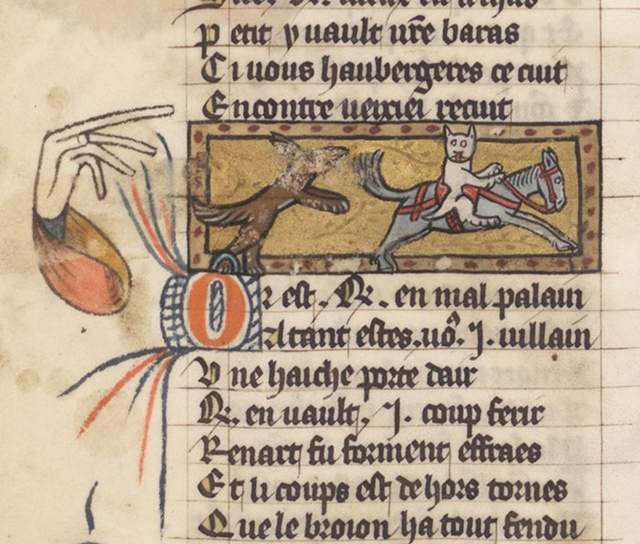 P etit y vault vre baras
C i vous haubergeres ce cuit
E ncontre recuit
O r est . R . en mal palain
A tant estes . uo . I . uillain
V ne haiche porte dair
R . en uault . I . coup ferir
R enart fu forment effraes
E t li coups est dehors tornes
Q ue le broion ha tout fendu